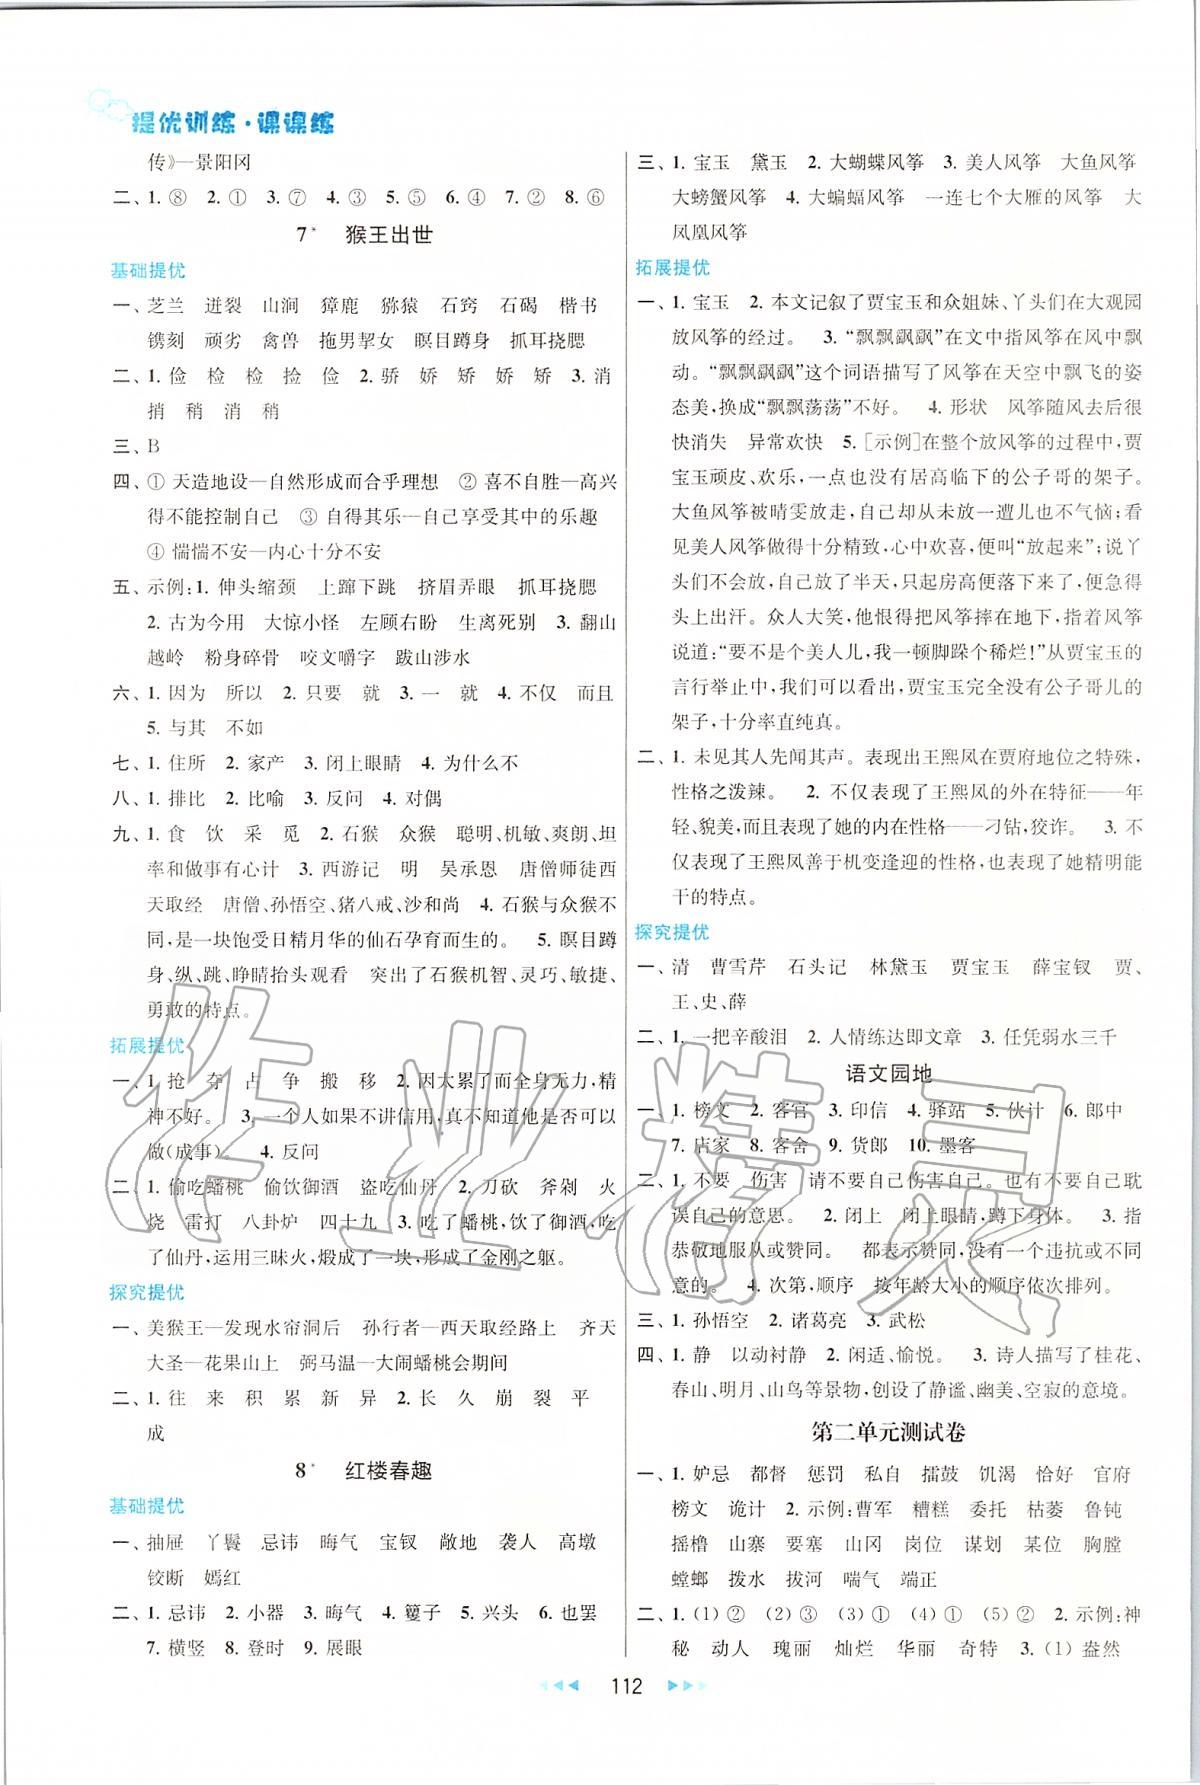 提优训练·课课练
传》—景阳冈
二、1. ⑧ 2. ① 3. ⑦ 4. ③ 5. ⑤ 6. ④ 7. ② 8. ⑥
7* 猴王出世
基础提优
一、芝兰 迸裂 山涧 獐鹿 猕猿 石窍 石碣 楷书
镌刻 顽劣 禽兽 拖男挈女 瞑目蹲身 抓耳挠腮
二、1. 俭 检 检 捡 俭 2. 骄 娇 矫 娇 矫 3. 消
捎 稍 消 稍
三、B
四、① 天造地设—自然形成而合乎理想 ② 喜不自胜—高兴
得不能控制自己 ③ 自得其乐—自己享受其中的乐趣
④ 惴惴不安—内心十分不安
五、示例:1. 伸头缩颈 上蹿下跳 挤眉弄眼 抓耳挠腮
2. 古为今用 大惊小怪 左顾右盼 生离死别 3. 翻山
越岭 粉身碎骨 咬文嚼字 跋山涉水
六、1. 因为 所以 2. 只要 就 3. 一 就 4. 不仅 而且
5. 与其 不如
七、1. 住所 2. 家产 3. 闭上眼睛 4. 为什么不
八、1. 排比 2. 比喻 3. 反问 4. 对偶
九、1. 食 饮 采 觅 2. 石猴 众猴 聪明、机敏、爽朗、坦
率和做事有心计 3. 西游记 明 吴承恩 唐僧师徒西
天取经 唐僧、孙悟空、猪八戒、沙和尚 4. 石猴与众猴不
同,是一块饱受日精月华的仙石孕育而生的。 5. 瞑目蹲
身、纵、跳、睁睛抬头观看 突出了石猴机智、灵巧、敏捷、
勇敢的特点。
拓展提优
一、1. 抢 夺 占 争 搬 移 2. 因太累了而全身无力,精
神不好。 3. 一个人如果不讲信用,真不知道他是否可以
做(成事)。 4. 反问
二、1. 偷吃蟠桃 偷饮御酒 盗吃仙丹 2. 刀砍 斧剁 火
烧 雷打 八卦炉 四十九 3. 吃了蟠桃,饮了御酒,吃
了仙丹,运用三昧火,煅成了一块,形成了金刚之躯。
探究提优
一、美猴王—发现水帘洞后 孙行者—西天取经路上 齐天
大圣—花果山上 弼马温—大闹蟠桃会期间
二、1. 往 来 积 累 新 异 2. 长 久 崩 裂 平
成
8* 红楼春趣
基础提优
一、抽屉 丫鬟 忌讳 晦气 宝钗 敞地 袭人 高墩
铰断 嫣红
二、1. 忌讳 2. 小器 3. 晦气 4. 籰子 5. 兴头 6. 也罢
7. 横竖 8. 登时 9. 展眼
三、1. 宝玉 黛玉 2. 大蝴蝶风筝 3. 美人风筝 大鱼风筝
大螃蟹风筝 4. 大蝙蝠风筝 一连七个大雁的风筝 大
凤凰风筝
拓展提优
一、1. 宝玉 2. 本文记叙了贾宝玉和众姐妹、丫头们在大观园
放风筝的经过。 3. “飘飘飖飖”在文中指风筝在风中飘
动。“飘飘飖飖”这个词语描写了风筝在天空中飘飞的姿
态美,换成“飘飘荡荡”不好。 4. 形状 风筝随风去后很
快消失 异常欢快 5. [示例]在整个放风筝的过程中,贾
宝玉顽皮、欢乐,一点也没有居高临下的公子哥的架子。
大鱼风筝被晴雯放走,自己却从未放一遭儿也不气恼;看
见美人风筝做得十分精致,心中欢喜,便叫“放起来”;说丫
头们不会放,自己放了半天,只起房高便落下来了,便急得
头上出汗。众人大笑,他恨得把风筝摔在地下,指着风筝
说道:“要不是个美人儿,我一顿脚跺个稀烂!”从贾宝玉的
言行举止中,我们可以看出,贾宝玉完全没有公子哥儿的
架子,十分率直纯真。
二、1. 未见其人先闻其声。表现出王熙凤在贾府地位之特殊,
性格之泼辣。 2. 不仅表现了王熙凤的外在特征——年
轻、貌美,而且表现了她的内在性格——刁钻,狡诈。 3. 不
仅表现了王熙凤善于机变逢迎的性格,也表现了她精明能
干的特点。
探究提优
一、清 曹雪芹 石头记 林黛玉 贾宝玉 薛宝钗 贾、
王、史、薛
二、1. 一把辛酸泪 2. 人情练达即文章 3. 任凭弱水三千
语文园地
一、1. 榜文 2. 客官 3. 印信 4. 驿站 5. 伙计 6. 郎中
7. 店家 8. 客舍 9. 货郎 10. 墨客
二、1. 不要 伤害 请不要自己伤害自己。也有不要自己耽
误自己的意思。 2. 闭上 闭上眼睛,蹲下身体。 3. 指
恭敬地服从或赞同。 都表示赞同,没有一个违抗或不同
意的。 4. 次第,顺序 按年龄大小的顺序依次排列。
三、1. 孙悟空 2. 诸葛亮 3. 武松
四、1. 静 以动衬静 2. 闲适、愉悦。 3. 诗人描写了桂花、
春山、明月、山鸟等景物,创设了静谧、幽美、空寂的意境。
第二单元测试卷
一、1. 妒忌 都督 惩罚 私自 擂鼓 饥渴 恰好 官府
榜文 诡计 2. 示例:曹军 糟糕 委托 枯萎 鲁钝
摇橹 山寨 要塞 山冈 岗位 谋划 某地 胸膛
螳螂 拨水 拔河 喘气 端正
二、1. (1) ② (2) ③ (3) ① (4) ① (5) ② 2. 示例:神
秘 动人 瑰丽 灿烂 华丽 奇特 3. (1) 盎然
112
作业精灵